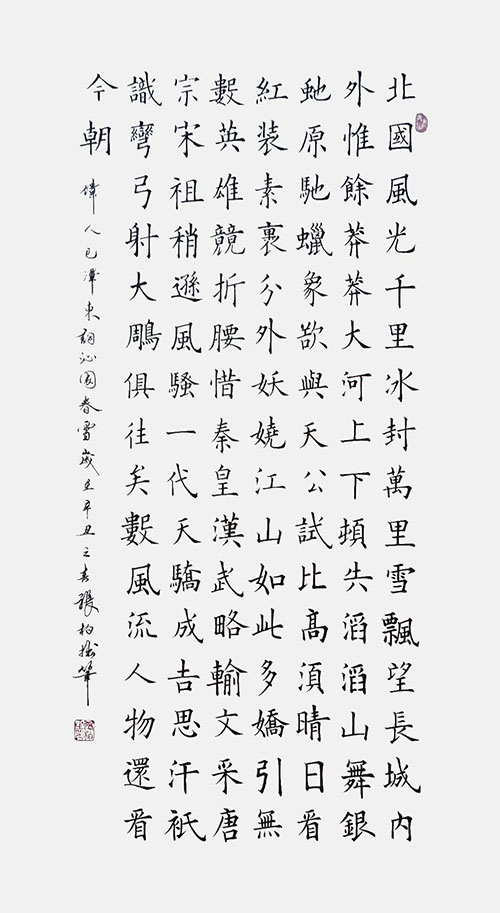 北國風光千里冰封萬里雪飄望長城內
外惟餘莽莽大河上下頓失滔滔山舞銀
虵原馳蠟象欲與天公試比高須晴日看
紅装素裹分外妖嬈江山如此多嬌引無
數英雄競折腰惜秦皇漢武略輸文采唐
宗宋祖稍遜風騷一代天驕成吉思汗祇
識彎弓射大鵰俱往矣數風流人物還看
今朝
偉人毛澤東詞沁園春雪歲在辛丑之春張柏筆